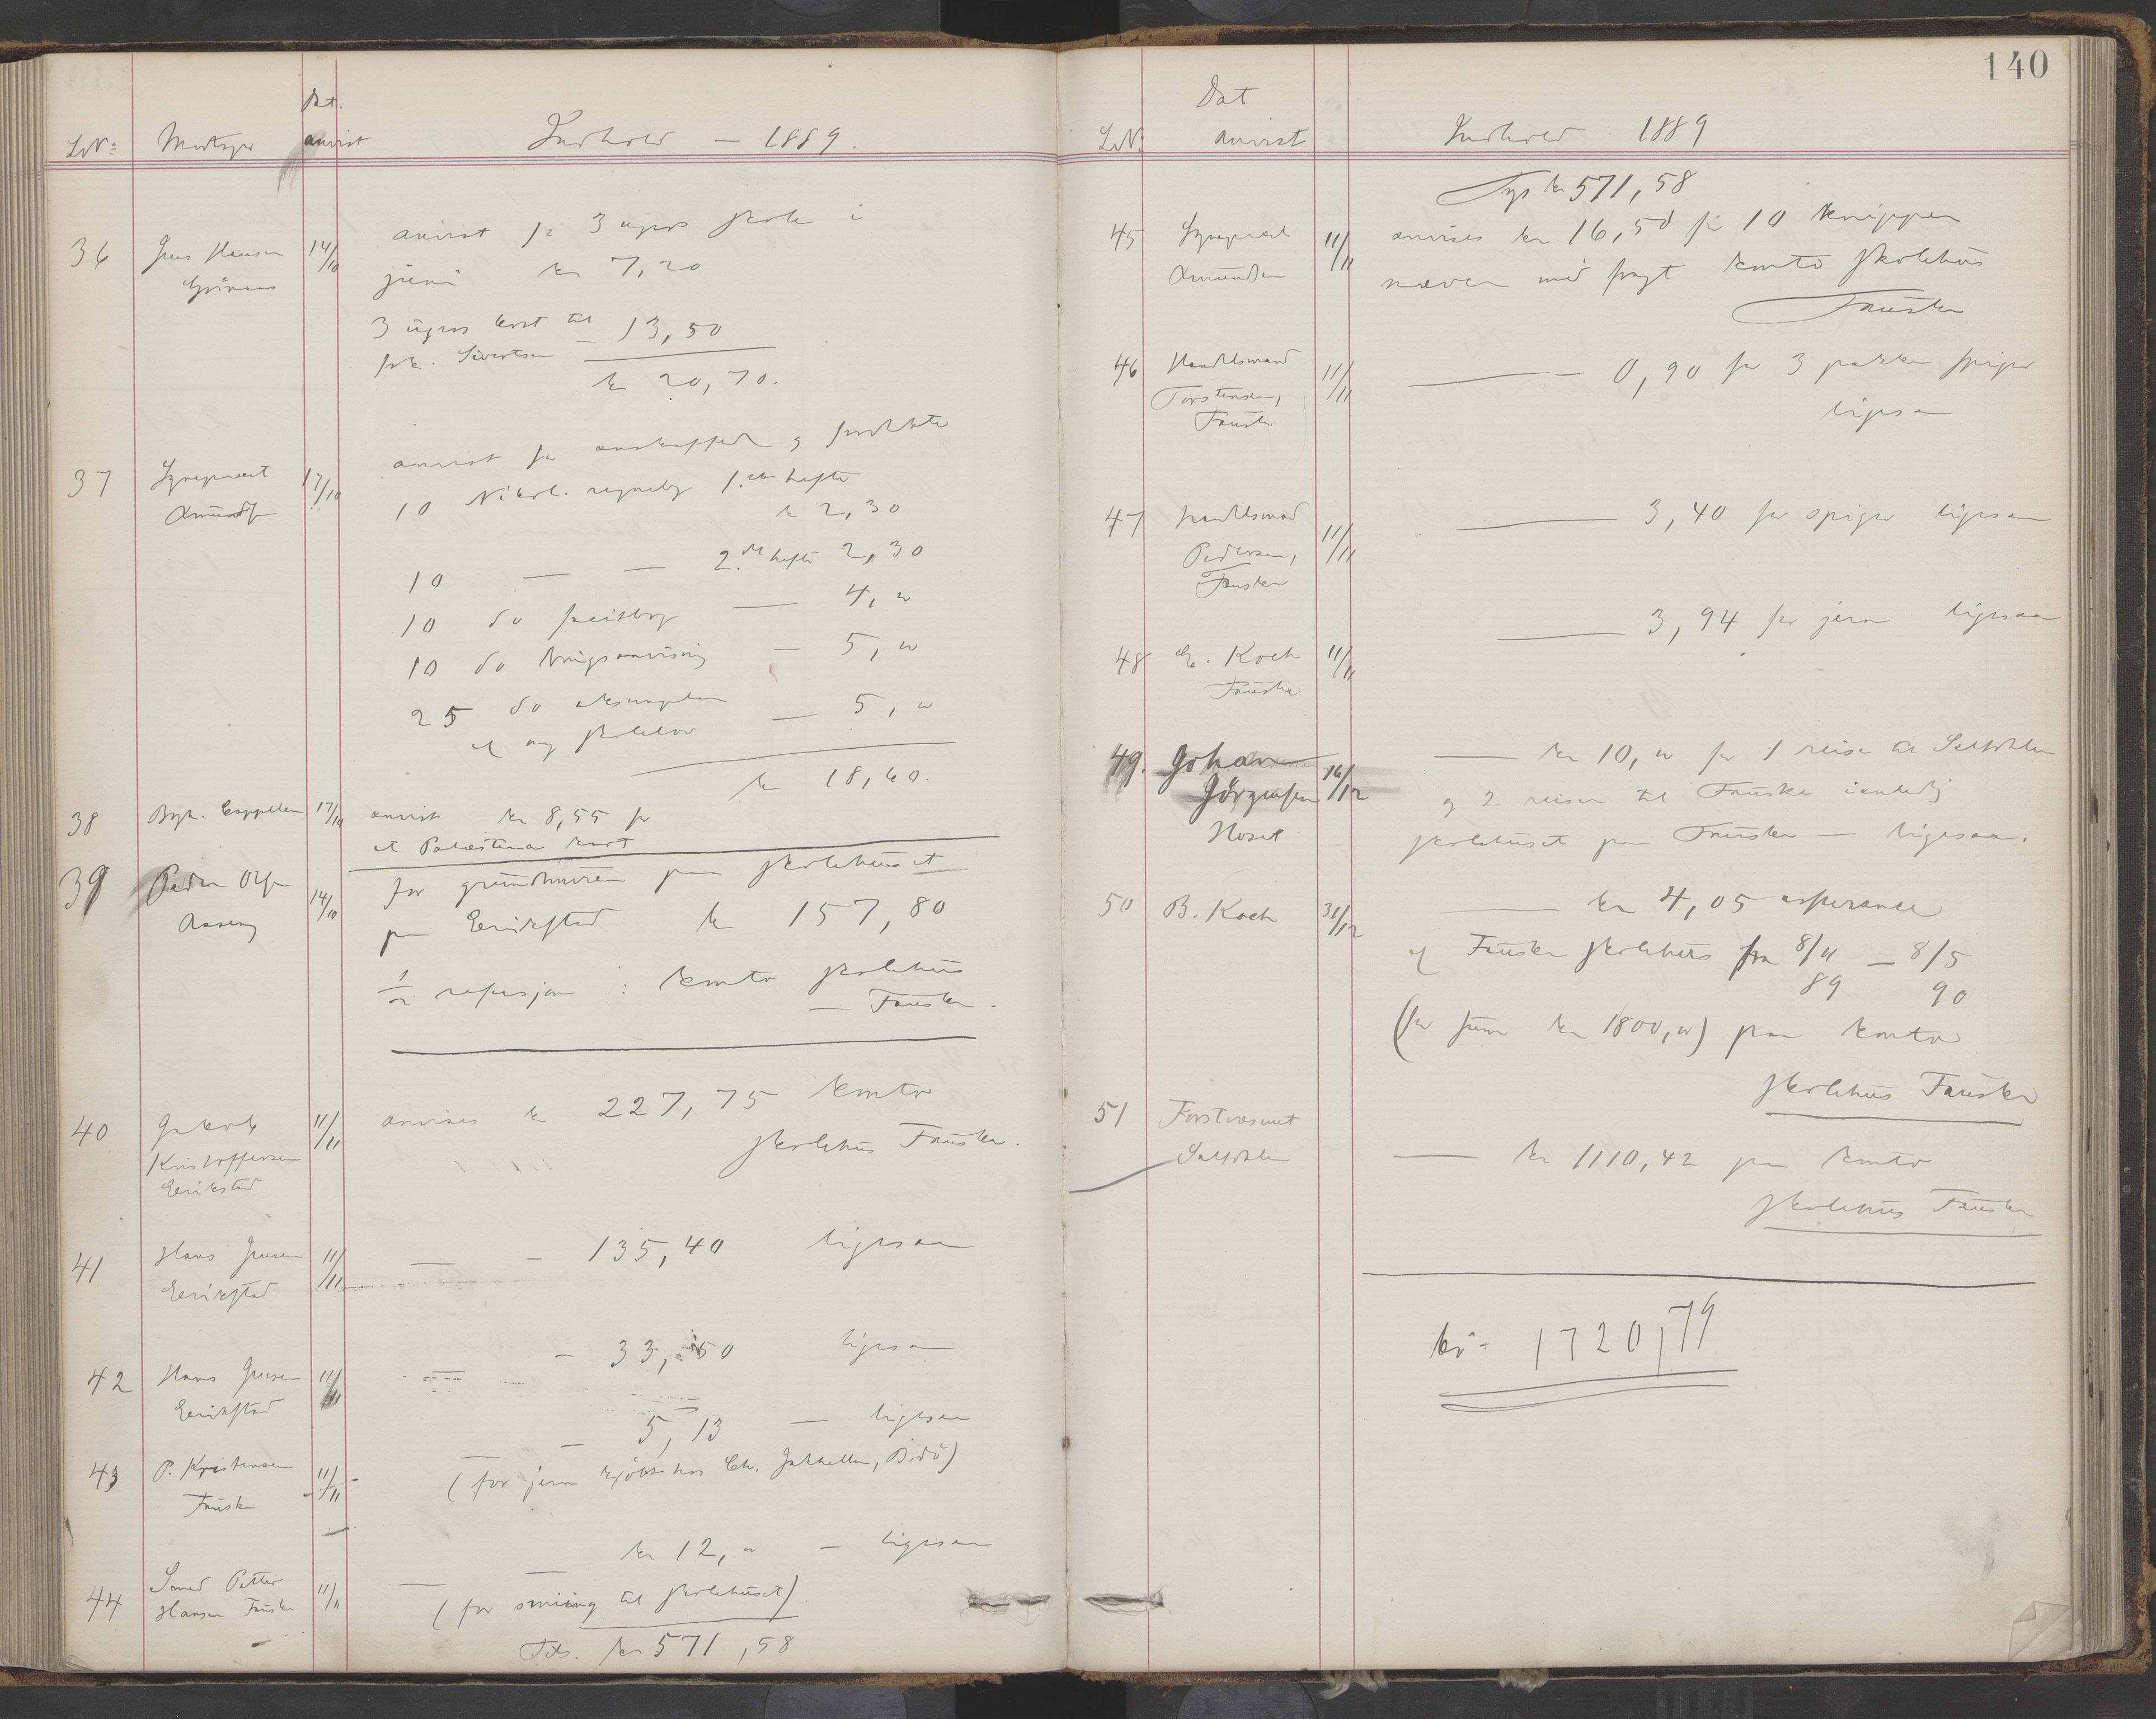 Dat.
LNr: Modtager anvist Indhold – 1889.
36 Jens Hansen 14/10 anvist for 3 ugers skole i
juni kr 7,20
3 ugers kost til
frk. Sivertsen – 13,50
kr 20,70.
37 Amundsen 17/10 anvist for anskaffede
10 Nikol. regnebog 1.ste hefte
kr 2,30
10 — — 2.det hefte 2,30
10 do — 4, "
10 do — 5, "
25 do eksemplar
af ny skolelov — 5, "
kr 18,60.
38 Cappelen 17/10 anvist kr 8,55 for
et Palæstina kart
39 Peder Olsen 14/10 for grundmuren paa skolehuset
Aaseng
paa Erikstad kr 157,80
1/2 : konto skolehus
— Fauske.
40 Jakob 11/11 anvises kr 227,75 konto
Kristoffersen skolehus Fauske.
Erikstad
41 Hans Jensen 11/11 — – 135,40 ligesaa
Erikstad
42 Hans Jensen 11/11 – 33,50 ligesaa
Erikstad
43 P. Kristensen 11/11 — – 5,13 — ligesaa
Fauske (for jern kjøbt hos Chr. Jakhelln, Bodö)
44 Smed Petter 11/11 — kr 12, " – ligesaa
Hansen Fauske (for smiing til skolehuset)
Tils. kr 571,58
140
Dat
LNr. anvist Indhold 1889
Tils. kr 571,58
45 11/11 anvises kr 16,50 for 10 knipper
Amundsen næver med fragt konto skolehus
Fauske
46 Handelsmand 11/11 — – 0,90 for 3 pakker spiger
Torstensen, ligesaa
Fauske
47 Handelsmand 11/11 — 3,40 for spiger ligesaa
Pedersen,
Fauske
48 Koch 11/11 — 3,94 for jern ligesaa
Fauske
49. Johan 16/12 — kr 10, " for 1 reise til Saltdalen
Jörgensen og 2 reiser til Fauske
Hoset skolehuset paa Fauske — ligesaa.
50 B. Koch 31/12 — kr 4,05 assurance
af Fauske skolehus fra 8/11 – 8/5
89 90
(for sum kr 1800, ") paa konto
skolehus Fauske
51 Forstvæsenet
Saltdalen — kr 1110,42 paa konto
skolehus Fauske
kr. 1720,79